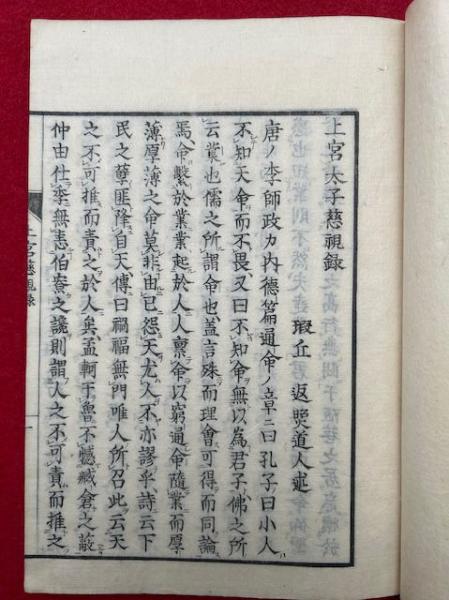 上宮太子慈視録
瑕丘 返煚道人述
唐ノ李師政カ內德篇通命ノ章ニ曰孔子曰小人
不知天命而不畏又曰不知命無以為君子佛之所
云業也儒之所謂命也蓋言殊而理會可得而同論
焉命繫於業業起於人人稟命以窮通命隨業而厚
薄厚薄之命莫非由己怨天尤人不亦謬乎詩云下
民之孽匪降自天傳曰禍福無門唯人所召此云天
之不可推而責之於人矣孟軻于魯不憾臧倉之蔽
仲由仕季無恚伯寮之譏則謂人之不可責而推之
上宮慈視録